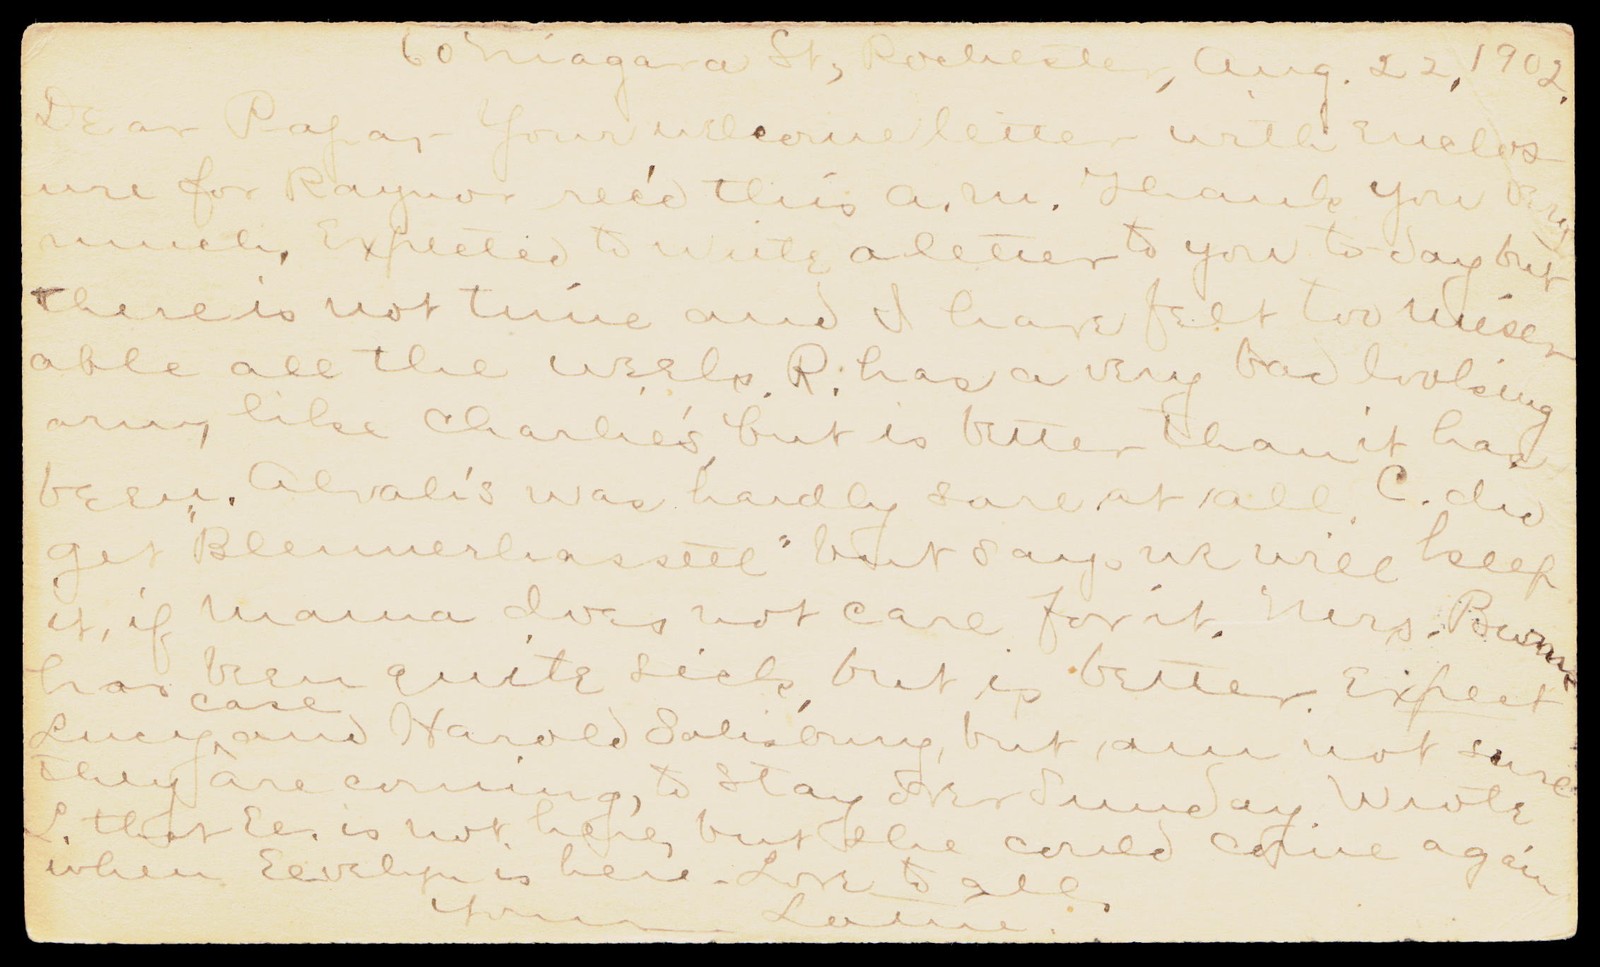 60 Niagara St, Rochester, Aug. 22, 1902.
Dear Papa, Your welcome letter with enclos-
ure for Raynor rec'd this a.m. Thank you very
much. Expected to write a letter to you to-day but
there is not time and I have felt too miser-
able all the week. R. has a very bad looking
arm, like Charlie's, but is better than it has
been. was hardly sore at all. C. did
get "Blennerhassett" but says we will keep
it, if mama does not care for it. Mrs. Burns
has been quite sick, but is better. Expect
Lucy case and Harold Salisbury, but am not sure
they are coming, to stay over Sunday. Wrote
L. that Ev. is not here, but she could come again
when Evelyn is here. Love to all,
Yours Lottie.